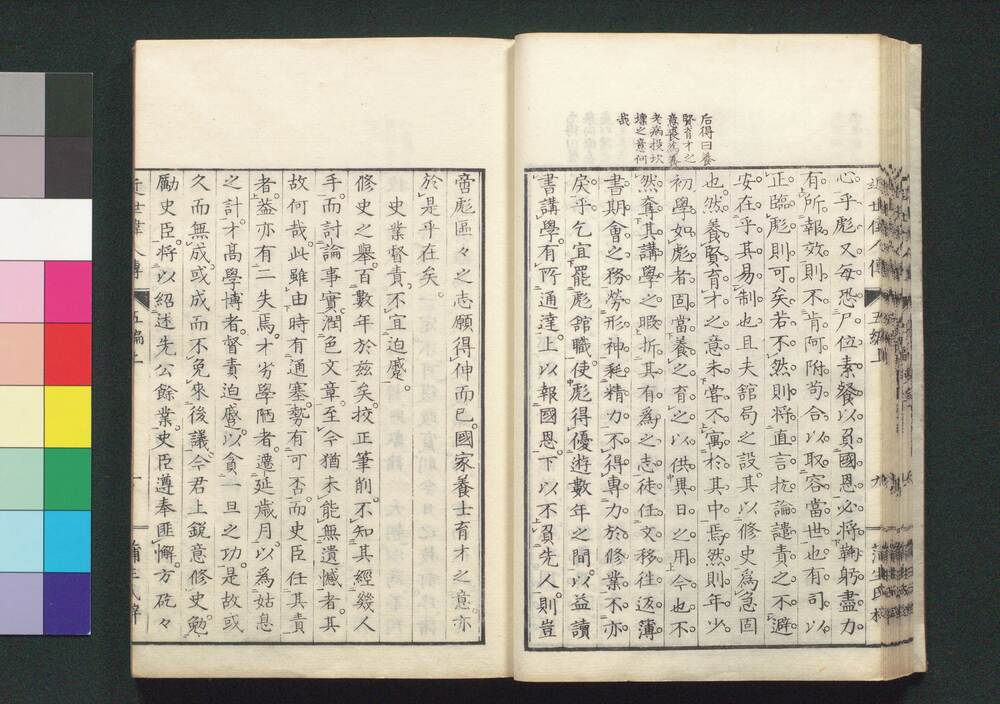 后得曰養
賢育才之
意喪爲養
老病投坎
壈之意何
哉
心乎彪又每恐尸位素餐以負國恩必將鞠躬盡力
有所報效則不肯阿附苟合以取容當世也有司以
正臨彪則可矣若不然則將直言抗論譴責之不避
安在乎其易制也且夫舘局之設其以修史爲急固
也然養賢育才之意未嘗不寓於其中焉然則年少
初學如彪者固當養之育之以供異日之用今也不
然奪其講學之暇折其有爲之志徒任文移往返薄
書期會之務勞形神耗精力不得專力於修業不亦
戾乎乞宜罷彪舘職使彪得優游數年之間以益讀
書講學有所通達上以報國恩下以不負先人則豈
近世偉人傳
五編上
九
蒲生氏杦
啻彪區々之志願得伸而已國家養士育才之意亦
於是乎在矣
史業督責不宜迫蹙
修史之舉百數年於茲矣挍正筆削不知其經幾人
手而討論事實潤色文章至今猶未能無遺憾者其
故何哉此雖由時有通塞勢有可否而史臣任其責
者葢亦有二失焉才劣學陋者遷延歲月以爲姑息
之計才髙學博者督責迫蹙以貪一旦之功是故或
久而無成或成而不免來後議今君上鋭意修史勉
勵史臣將以紹述先公餘業史臣遵奉匪懈方矻々
近世偉人傳
五編上